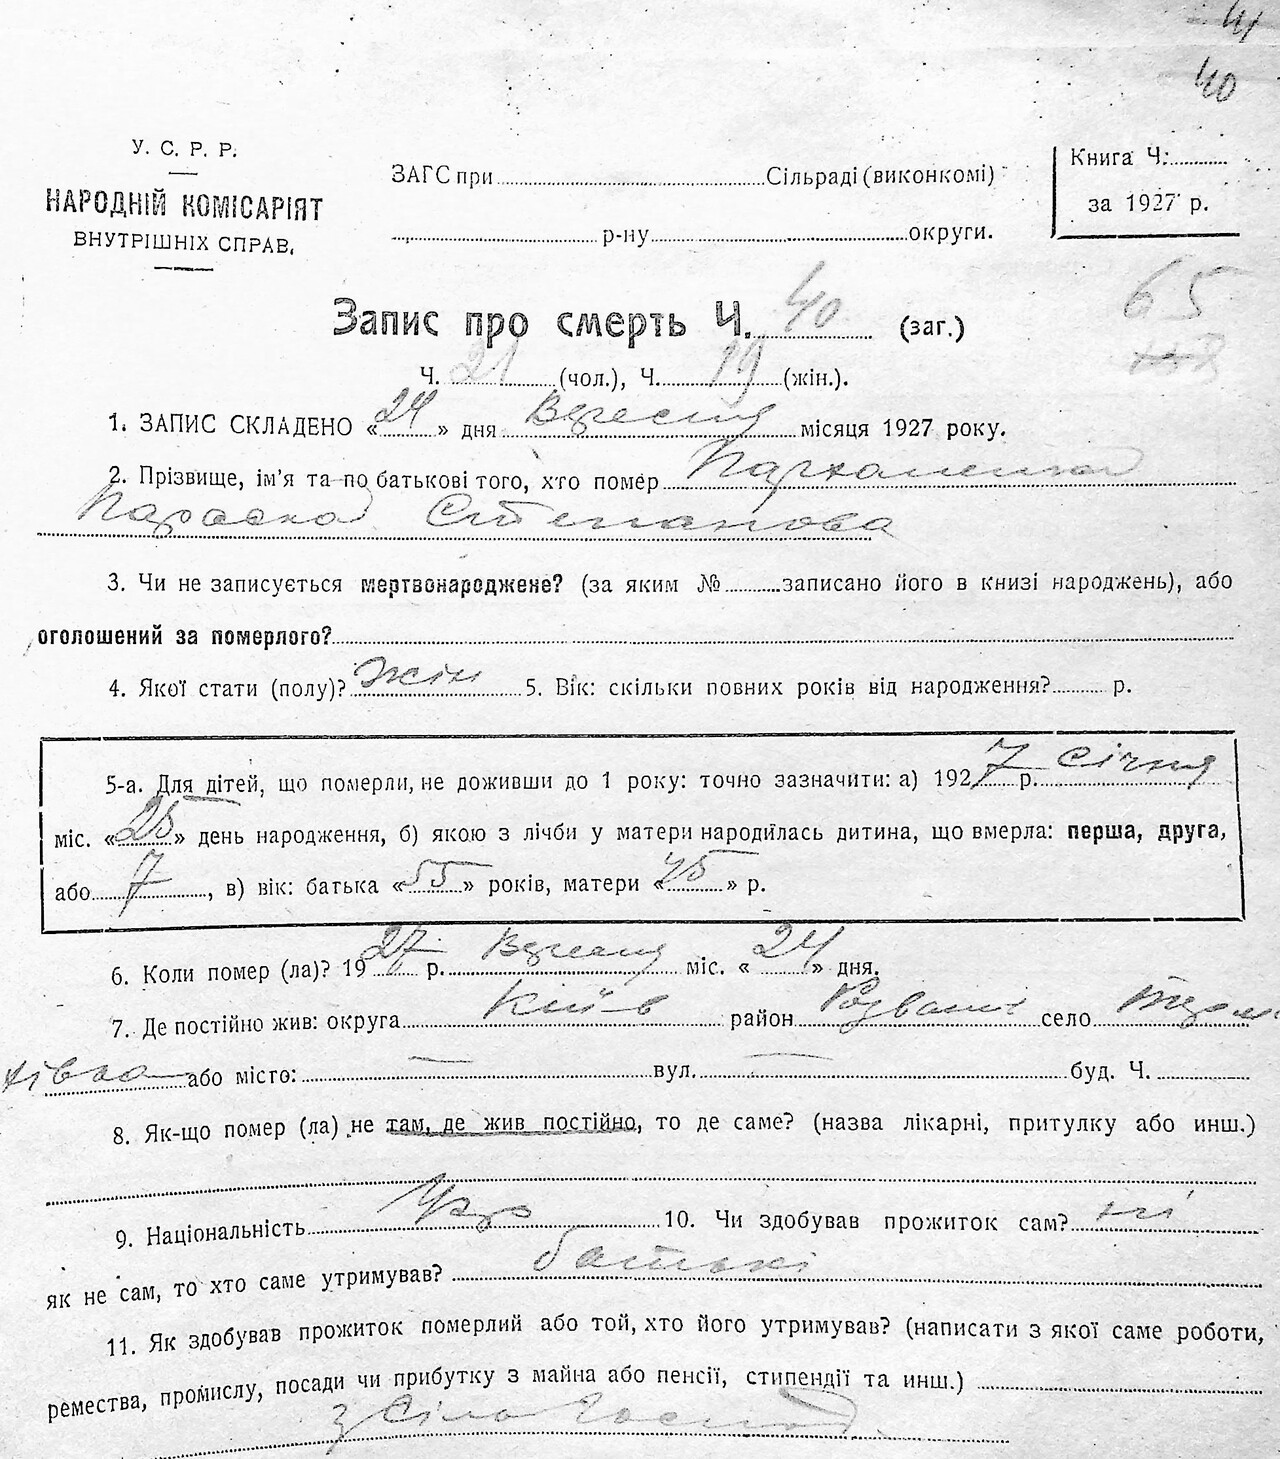 41
40
У. С. Р. Р.
НАРОДНІЙ КОМІСАРІЯТ
ВНУТРІШНІХ СПРАВ.
ЗАГС при Сільраді (виконкомі)
р-ну округи.
Книга Ч:
за 1927 р.
65
Запис про смерть Ч. 40 (заг.)
Ч. 21 (чол.), Ч. 19 (жін.).
1. ЗАПИС СКЛАДЕНО « 24 » дня Вересня місяця 1927 року.
2. Прізвище, ім'я та по батькові того, хто помер Пархоменко
Параска Степанова
3. Чи не записується мертвонароджене? (за яким № записано його в книзі народжень), або
оголошений за померлого?
4. Якої стати (полу)? жін 5. Вік: скільки повних років від народження? р.
5-а. Для дітей, що померли, не доживши до 1 року: точно зазначити: а) 1927 р. Січня
міс. « 25 » день народження, б) якою з лічби у матери народилась дитина, що вмерла: перша, друга,
або 7, в) вік: батька « 55 » років, матери « 45 » р.
6. Коли помер (ла)? 1927 р. Вересня міс. « 24 » дня.
7. Де постійно жив: округа Київ район Розваж село
або місто: — вул. — буд. Ч.
8. Як-що помер (ла) не там, де жив постійно, то де саме? (назва лікарні, притулку або инш.)
9. Національність Укр 10. Чи здобував прожиток сам? ні
як не сам, то хто саме утримував? батькі
11. Як здобував прожиток померлий або той, хто його утримував? (написати з якої саме роботи,
ремества, промислу, посади чи прибутку з майна або пенсії, стипендії та инш.)
з Сіль Господ.